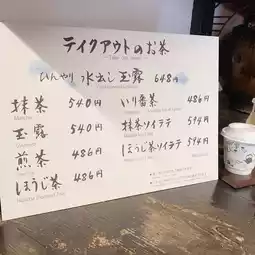 テイクアウトのお茶
ひんやり 水出し玉露 648円
抹茶 540円
玉露 540円
煎茶 486円
ほうじ茶 486円
いり番茶 486円
抹茶ソイラテ 594円
ほうじ茶ソイラテ 594円